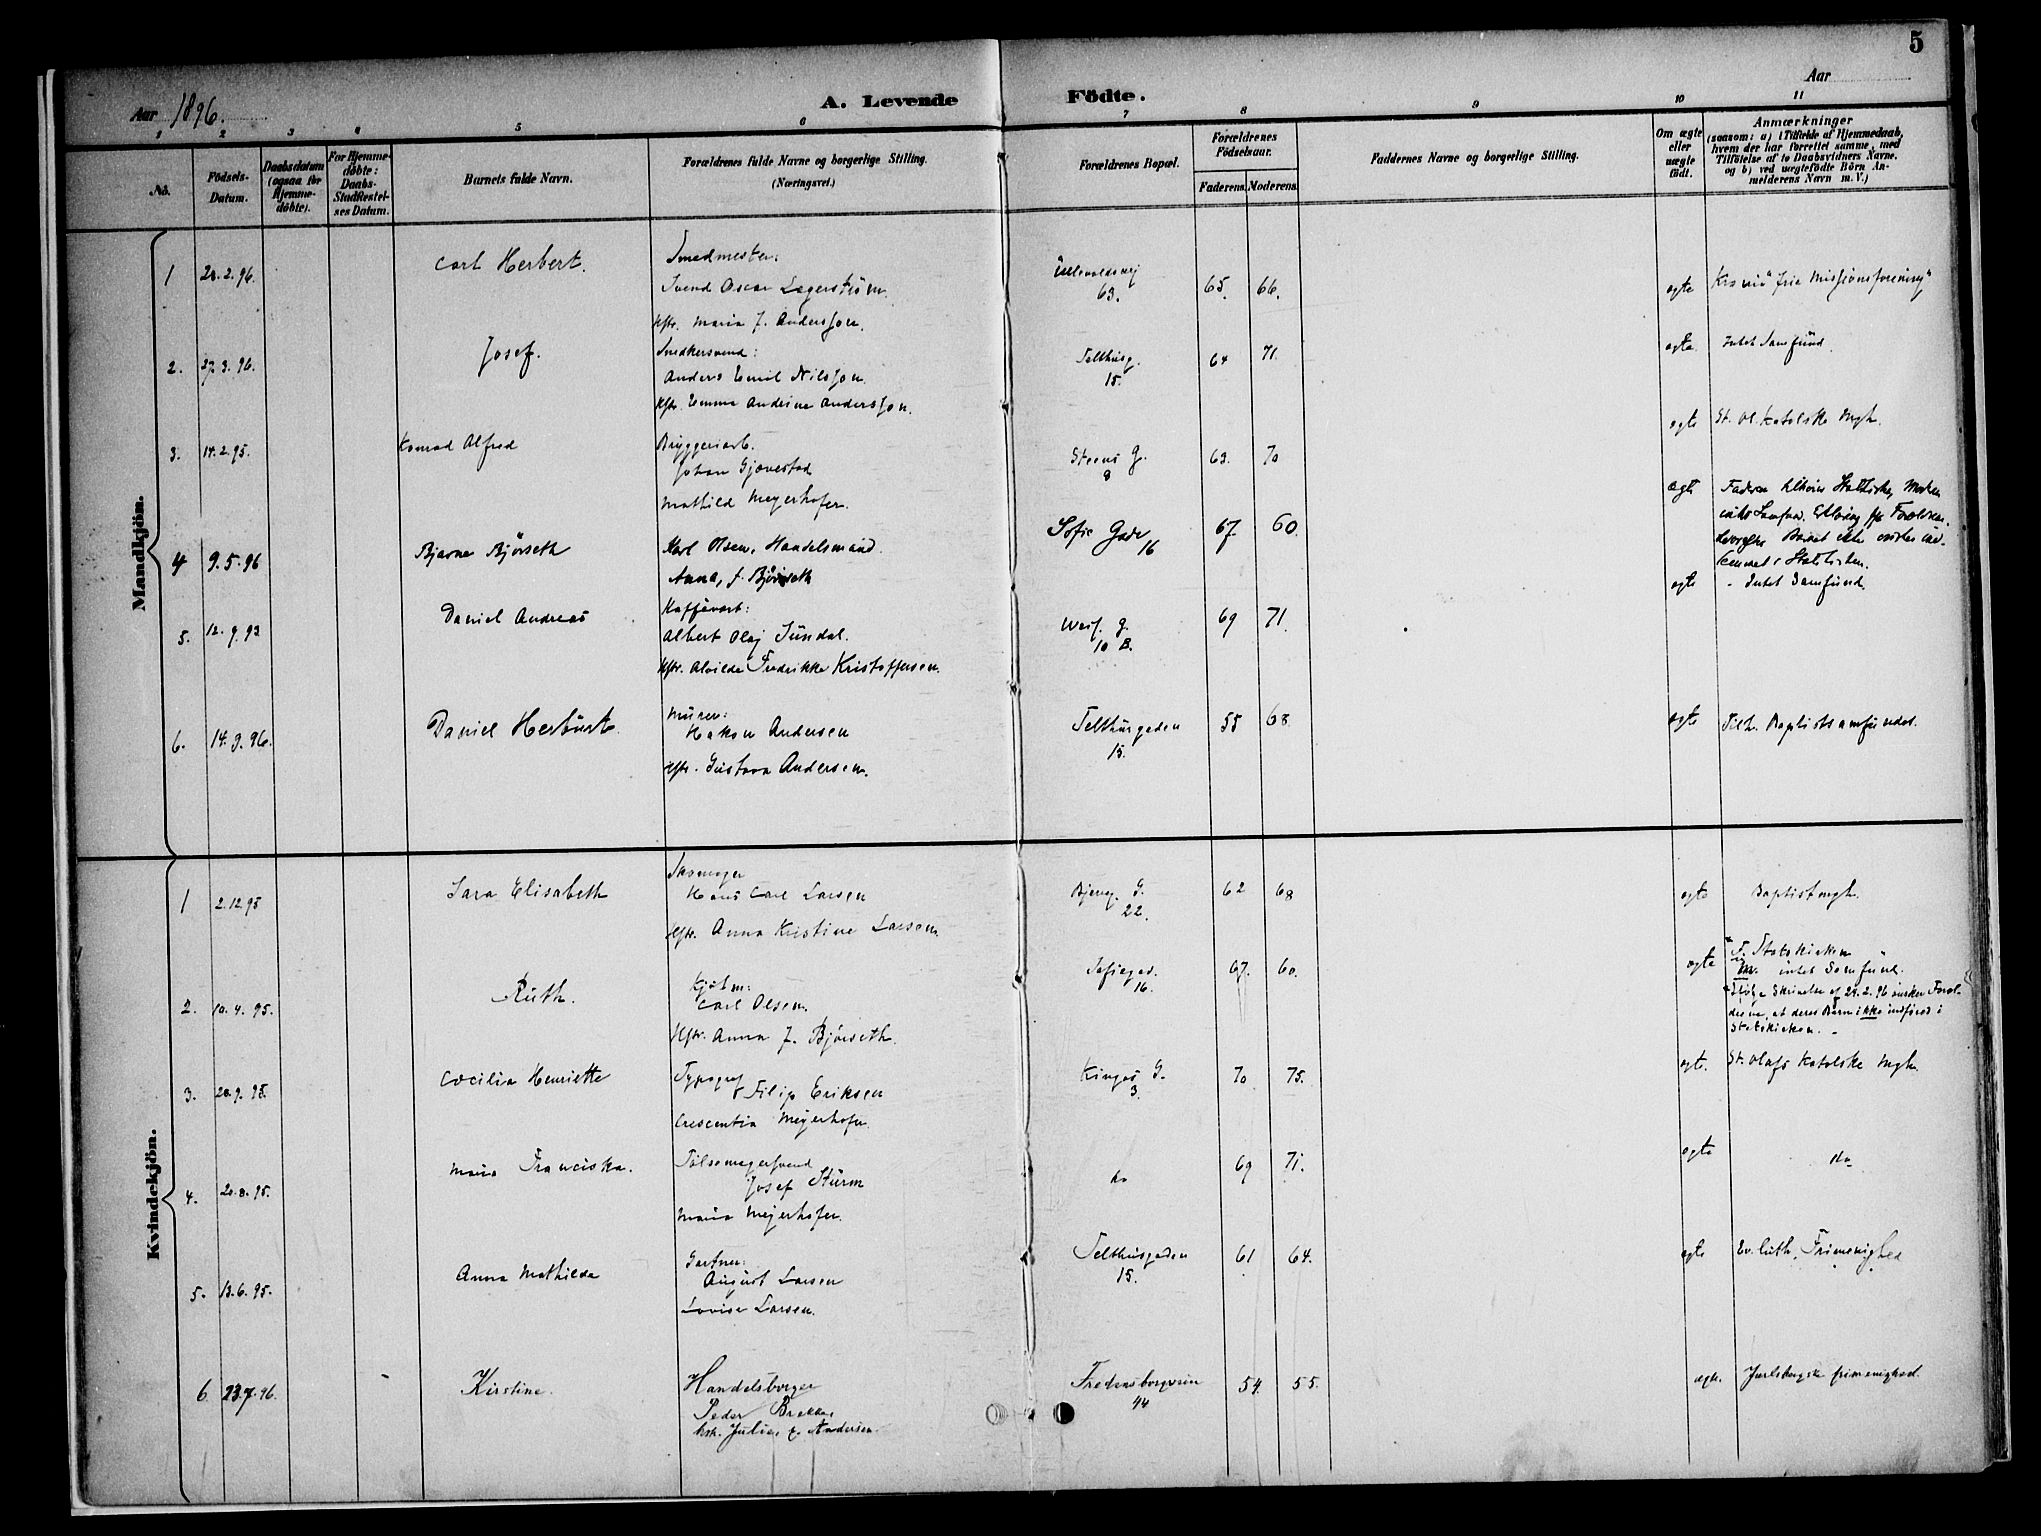 5
Aar 1896. A. Levende Födte. Aar
1 2 3 4 5 6 7 8 9 10 11
No. Födsels-Datum. Daabsdatum (ogsaa for Hjemmedöbte). For Hjemmedöbte: Daabs-Stadfæstelses Datum. Barnets fulde Navn. Forældrenes fulde Navne og borgerlige Stilling. (Næringsvei.) Forældrenes Bopæl. Forældrenes Födselsaar. Faderens. Moderens. Faddernes Navne og borgerlige Stilling. Om ægte eller uægte födt. Anmærkninger (saasom: a) i Tilfælde af Hjemmedaab, hvem der har forrettet samme, med Tilföielse af to Daabsvidners Navne, og b) ved uægtefödte Börn Anmelderens Navn m. V.)
Mandkjön.
1 20.2.96. Carl Herbert. Smedmester:
Svend Oscar Lagerström.
Hstr. Maria f. Andersson.
Ullevoldsvej 63. 65. 66. ægte Kr.ania "frie Missionsforening"
2. 27.3.96. Josef. Snedkersvend:
Anders Emil Nilsson.
Hstr. Emma Andrine Andersson.
Telthusg. 15. 64 71. ægte. Intet Samfund.
3. 14.2.95. Konrad Alfred Bryggeriarb.
Johan Gjøvestad
Mathild Meyerhofer.
Steens G. 8 63. 70 ægte St. Ol. Katolske Mgh.
4 9.5.96 Bjarne Bjørseth Karl Olsen, Handelsmand.
Anna, f. Bjørseth
Sofies Gade 16 67. 60. ægte Faderen tilhører Statskirken, Moderen
intet Samfund.
5. 12.9.93 Daniel Andreas Kaffevært:
Albert Olaj Sundal.
Hstr. Alvilda Fredrikke Kristoffersen.
10 B. 69 71. ægte - Intet Samfund.
6. 14.9.96. Daniel Murer:
Hakon Andersen
Hstr. Gustava Andersen.
Telthusgaden 15. 55 68. ægte Tilh. Baptistsamfundet.
Kvindekjön.
1 2.12.95 Sara Elisabeth Skomager
Hans Carl Larsen
Hstr. Anna Kristine Larsen.
22. 62 68 ægte Baptistmgh.
2. 10.4.95. Ruth. Kjøbm:
Carl Olsen.
Hstr. Anna f. Bjørseth.
Sofiegad. 16. 67. 60. ægte F. Statskirken
M. intet Samfund.
Ifølge Skrivelse af 29.2.96 ønsker Forældrene, at deres Børn ikke indføres i
Statskirken. -
3. 20.9.95. Cæcilia Henriette Typograf
Filip Eriksen
Crescentia Meyerhofer.
Kingos G. 3. 70 75. ægt. St. Olafs Katolske Mgh.
4. 20.8.95. Maria Franciska. Pølsemagersvend
Josef Sturm
Maria Meyerhofer.
do 69 71. ægte do
5. 13.6.95. Anna Mathilda Gartner:
August Larsen
Lovise Larsen.
Telthusgaden 15. 61 64. ægte Ev. luth. Frimenighed
6. 23.7.96. Kirstine. Handelsborger
Peder Brekke,
hstr. Julie, f. Andersen.
Fredensborgveien 44 54. 55. ægte. Jarlsbergske frimenighed.